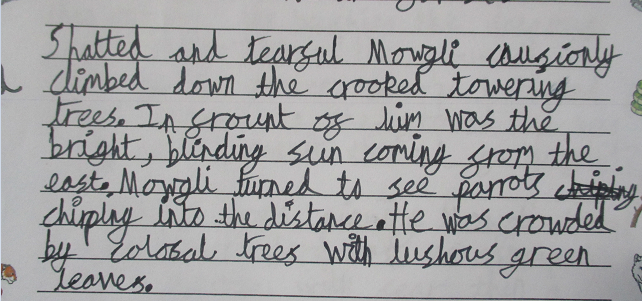 Shatted and tearful Mowgli causionly
climbed down the crooked towering
trees. In frount of him was the
bright, blinding sun coming from the
east. Mowgli turned to see parrots
chirping into the distance. He was crowded
by colosal trees with lushous green
leaves.